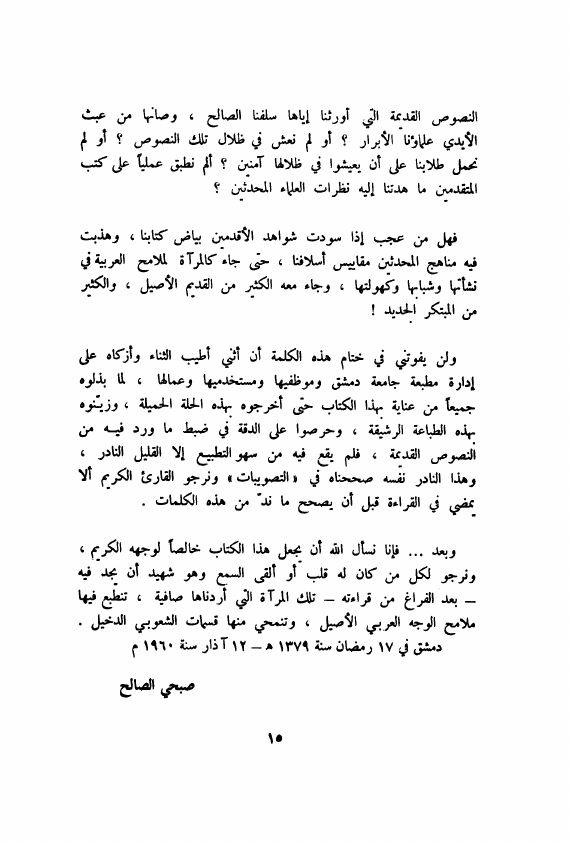 النصوص القديمة التي أورثنا إياها سلفنا الصالح ، وصانها من عبث
الأيدي علماؤنا الأبرار ؟ أو لم نعش في ظلال تلك النصوص ؟ أو لم
نحمل طلابنا على أن يعيشوا في ظلالها آمنين ؟ ألم نطبق عملياً على كتب
المتقدمين ما هدتنا إليه نظرات العلماء المحدثين ؟
فهل من عجب إذا سودت شواهد الأقدمين بياض كتابنا ، وهذبت
فيه مناهج المحدثين مقاييس أسلافنا ، حتى جاء كالمرآة لملامح العربية في
نشأتها وشبابها وكهولتها ، وجاء معه الكثير من القديم الأصيل ، والكثير
من المبتكر الجديد !
ولن يفوتني في ختام هذه الكلمة أن أثني أطيب الثناء وأزكاه على
إدارة مطبعة جامعة دمشق وموظفيها ومستخدميها وعمالها ، لما بذلوه
جميعاً من عناية بهذا الكتاب حتى أخرجوه بهذه الحلة الجميلة ، وزيّنوه
بهذه الطباعة الرشيقة ، وحرصوا على الدقة في ضبط ما ورد فيه من
النصوص القديمة ، فلم يقع فيه من سهو التطبيع إلا القليل النادر ،
وهذا النادر نفسه صححناه في « التصويبات » ونرجو القارئ الكريم ألا
يمضي في القراءة قبل أن يصحح ما ندّ من هذه الكلمات .
وبعد ... فإنا نسأل الله أن يجعل هذا الكتاب خالصاً لوجهه الكريم ،
ونرجو لكل من كان له قلب أو ألقى السمع وهو شهيد أن يجد فيه
– بعد الفراغ من قراءته – تلك المرآة التي أردناها صافية ، تنطبع فيها
ملامح الوجه العربي الأصيل ، وتنمحي منها قسمات الشعوبي الدخيل .
دمشق في ١٧ رمضان سنة ١٣٧٩ هـ – ١٢ آذار سنة ١٩٦٠ م
صبحي الصالح
١٥